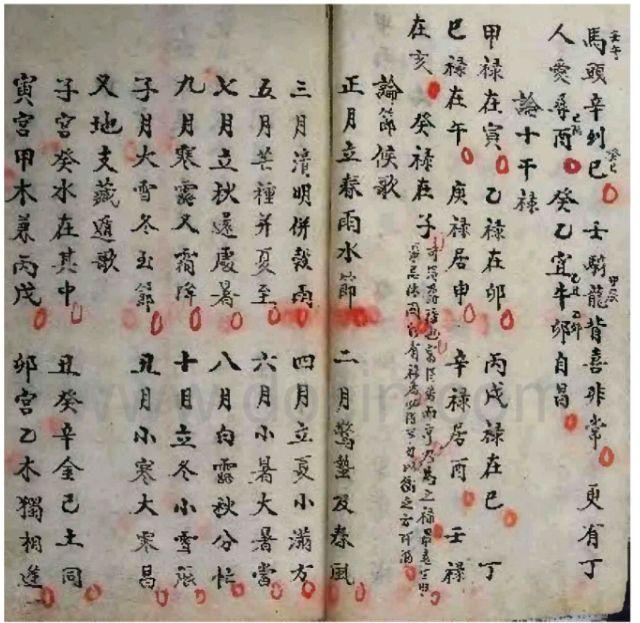 馬頭辛列巳 壬騎龍背喜非常 更有丁
壬午
癸巳
甲辰
人愛尋酉 癸乙宜牛卯自昌
論十干禄
甲禄在寅 乙禄在卯 丙戊禄在巳 丁
巳禄在午 庚禄居申 辛禄居酉 壬禄
在亥 癸禄在子
論節候歌
正月立春雨水節 二月驚蟄及春風
三月清明併穀雨 四月立夏小滿方
五月芒種并夏至 六月小暑大暑當
七月立秋還處暑 八月白露秋分忙
九月寒露又霜降 十月立冬小雪張
子月大雪冬至節 丑月小寒大寒昌
又地支藏遁歌
子宮癸水在其中 丑癸辛金己土同
寅宮甲木兼丙戊 卯宮乙木獨相逢